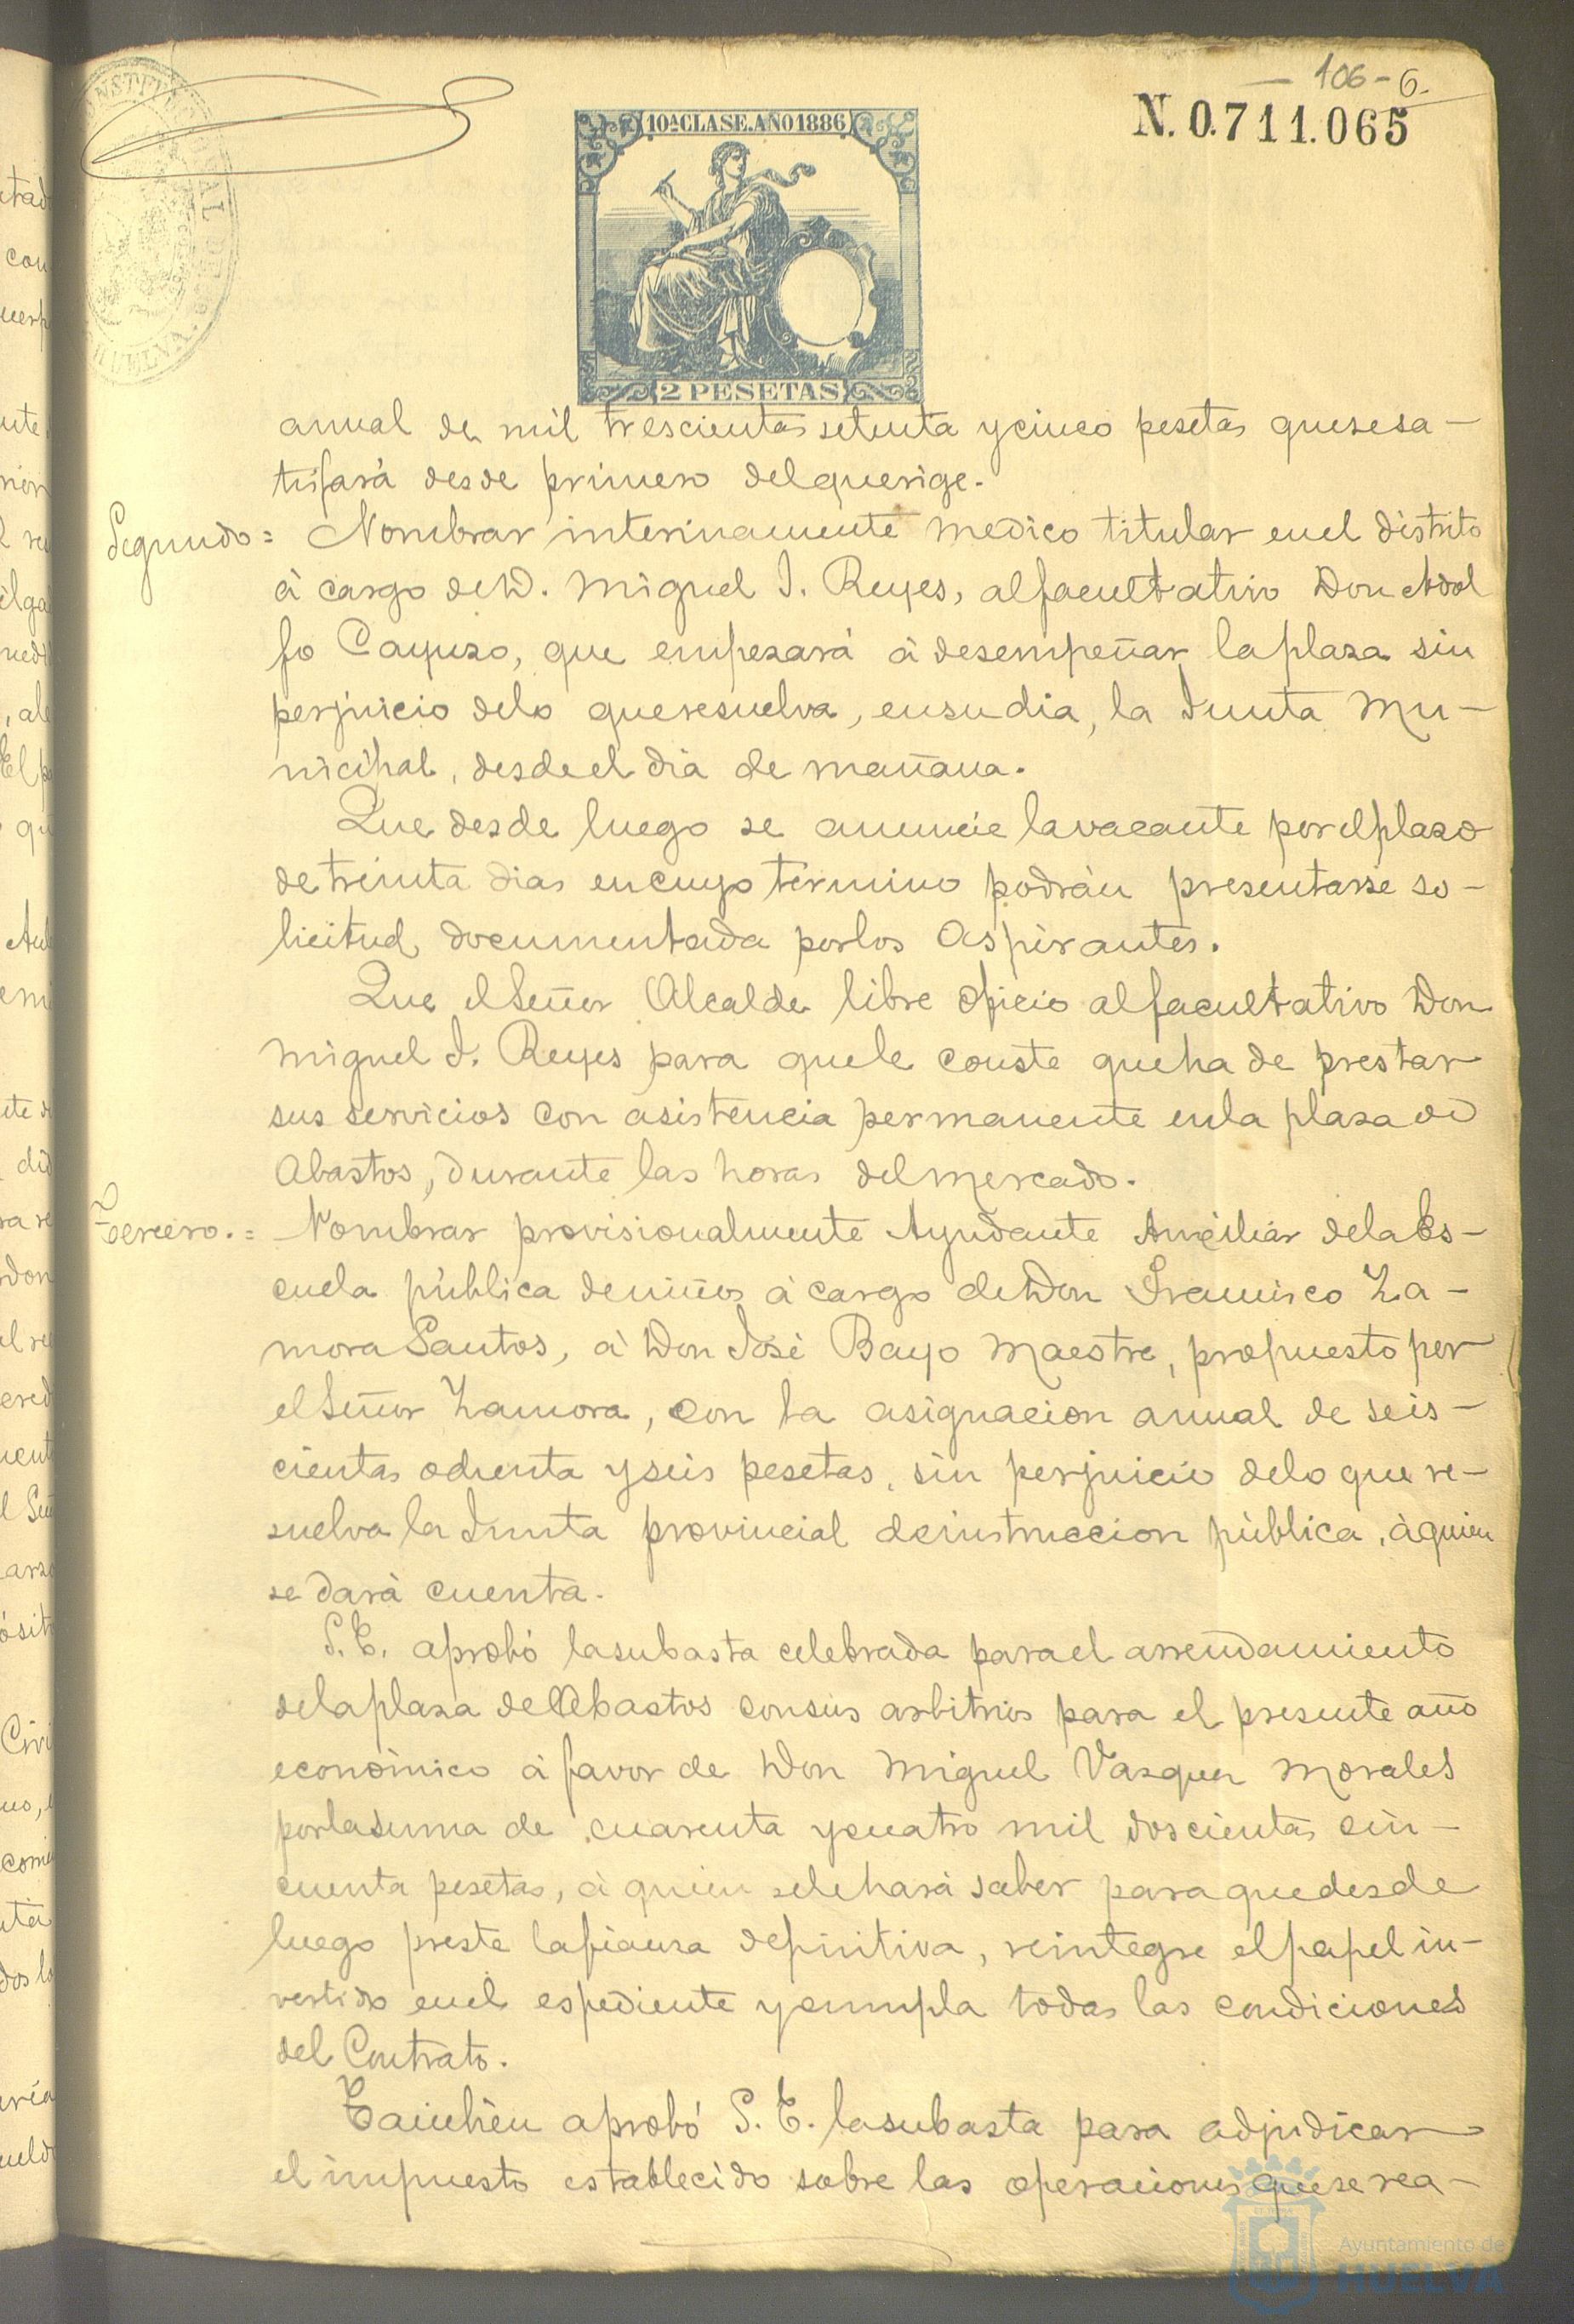 106-6.
N. 0.711.065
10ª CLASE. AÑO 1886
2 PESETAS
anual de mil trescientas setenta y cinco pesetas que se sa-
tisfará desde primero del que rige.
Segundo = Nombrar interinamente medico titular en el distrito
á cargo de D. Miguel J. Reyes, al facultativo Don Adol
fo Cayuso, que empezará á desempeñar la plaza sin
perjuicio de lo que resuelva, en su dia, la Junta Mu-
nicipal, desde el dia de mañana.
Que desde luego se anuncie la vacante por el plazo
de treinta dias en cuyo término podrán presentarse so-
licitud documentada por los Aspirantes.
Que el Señor Alcalde libre oficio al facultativo Don
Miguel J. Reyes para que le conste que ha de prestar
sus servicios con asistencia permanente en la plaza de
Abastos, durante las horas del mercado.
Tercero. = Nombrar provisionalmente Ayudante Auxiliar de la Es-
cuela pública de niños á cargo de Don Francisco Za-
mora Santos, á Don José Bayo Maestre, propuesto por
el Señor Zamora, con la asignacion anual de seis-
cientas ochenta y seis pesetas, sin perjuicio de lo que re-
suelva la Junta provincial de instruccion pública, á quien
se dará cuenta.
S. E. aprobó la subasta celebrada para el arrendamiento
de la plaza de Abastos con sus arbitrios para el presente año
económico á favor de Don Miguel Vazquez Morales
por la suma de cuarenta y cuatro mil doscientas cin-
cuenta pesetas, á quien se le hará saber para que desde
luego preste la fianza definitiva, reintegre el papel in-
vertido en el espediente y cumpla todas las condiciones
del Contrato.
Tambien aprobó S. E. la subasta para adjudicar
el impuesto establecido sobre las operaciones que se rea-
Ayuntamiento de
HUELVA